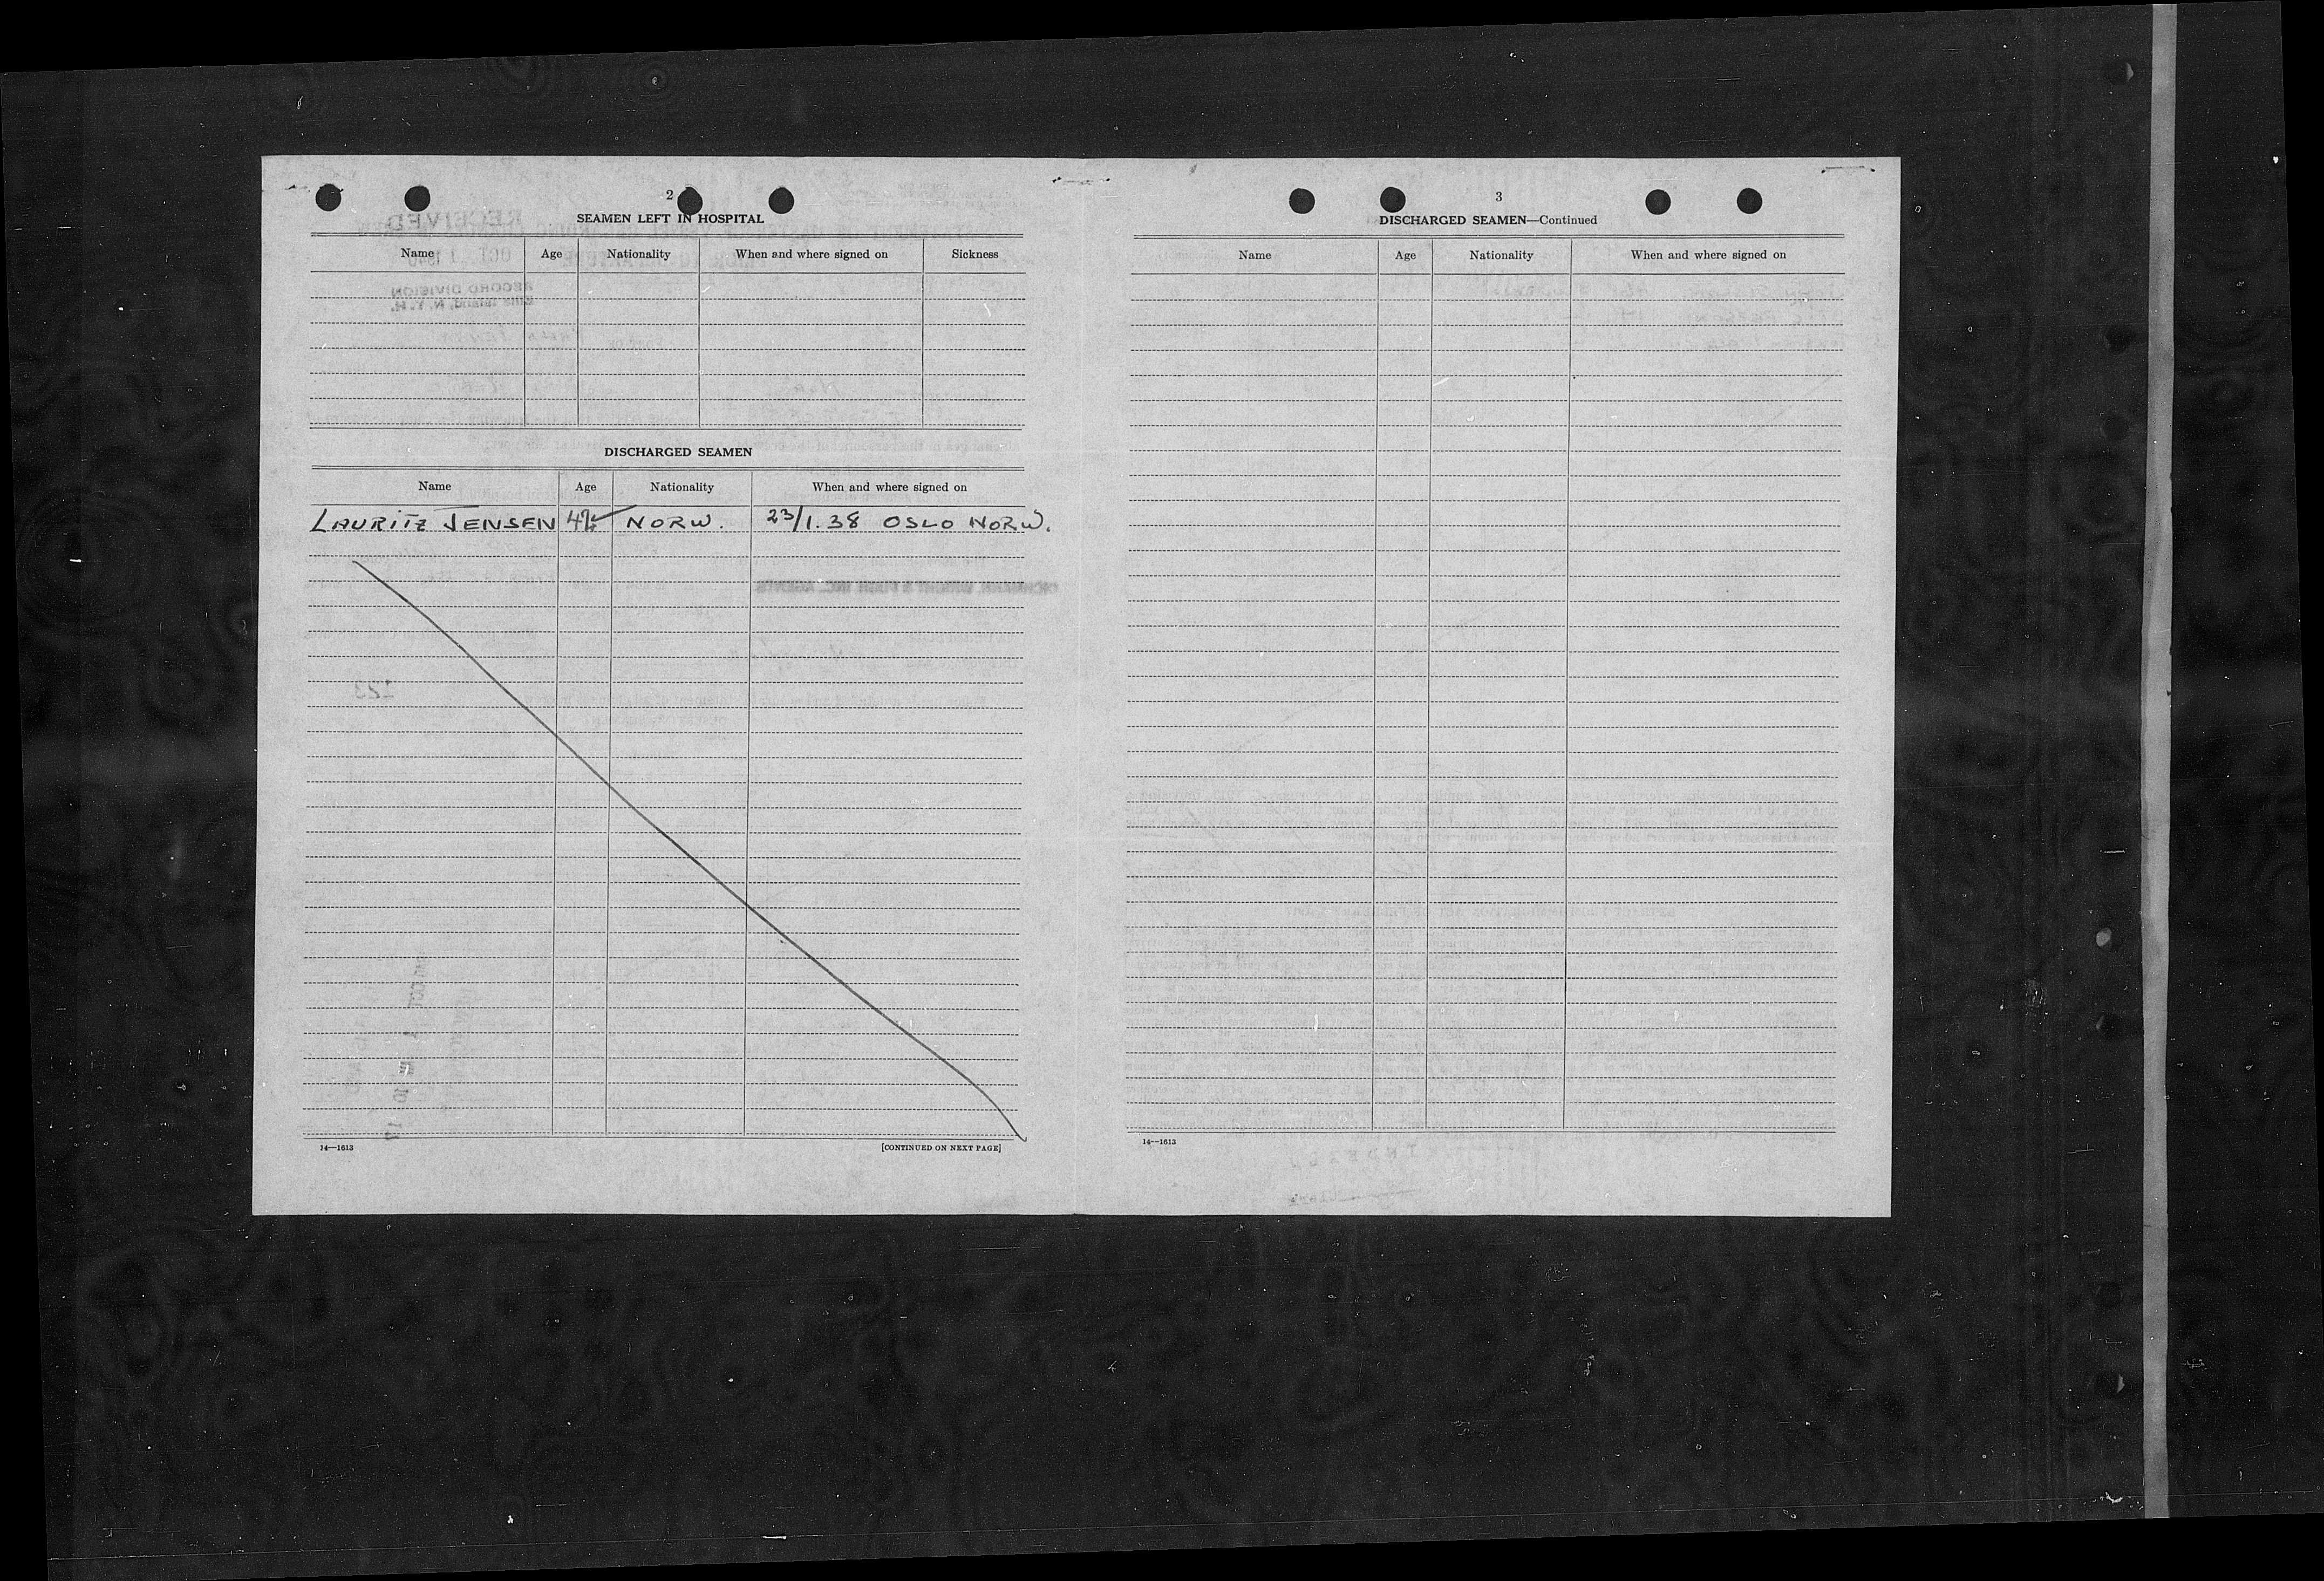 2
SEAMEN LEFT IN HOSPITAL
Name Age Nationality When and where signed on Sickness
DISCHARGED SEAMEN
Name Age Nationality When and where signed on
LAURITZ JENSEN NORW. 23/1.38 OSLO NORW.
14—1613 [CONTINUED ON NEXT PAGE]
3
DISCHARGED SEAMEN—Continued
Name Age Nationality When and where signed on
14—1613